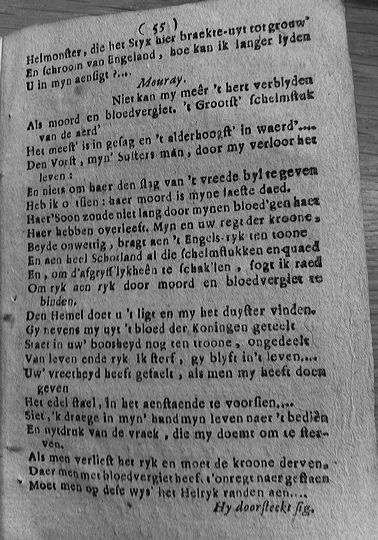 ( 55 )
Helmonster, die het Styx hier braekte-uyt tot grouw'
En schroom van Engeland, hoe kan ik langer lyden
U in myn aensigt ?....
Mouray.
Niet kan my meêr 't hert verblyden
Als moord en bloedvergiet. 't Grootst' schelmstuk
van de aerd'
Het meest' is in gesag en 't alderhoogst' in waerd'....
Den Vorst, myn' Susters man, door my verloor het
leven :
En niets om haer den slag van 't vreede byl te geven
Heb ik o'tsien : haer moord is myne laeste daed.
Haer' Soon zoude niet lang door mynen bloed'gen haet
Haer hebben overleeft. Myn en uw regt der kroone,
Beyde onwettig, bragt aen 't Engels-ryk ten toone
En aen heel Schotland al die schelmstukken en quaed
En, om d'afgryslykheên te schak'len, sogt ik raed
Om ryk aen ryk door moord en bloedvergiet te
binden.
Den Hemel doet u 't ligt en my het duyster vinden.
Gy nevens my uyt 't bloed der Koningen geteelt
Staet in uw' boosheyd nog ten troone, ongedeelt
Van leven ende ryk Ik sterf, gy blyft in't leven....
Uw' vreetheyd heeft gefaelt, als men my heeft doen
geven
Het edel stael, in het aenstaende te voorsien....
Siet, 'k draege in myn' hand myn leven naer 't bediên
En uytdruk van de vraek, die my doemt om te ster-
ven.
Als men verliest het ryk en moet de kroone derven,
Daer men met bloedvergiet heef. t'onregt naer gestaen
Moet men op dese wys' het Helryk randen aen....
Hy doorsteekt sig.